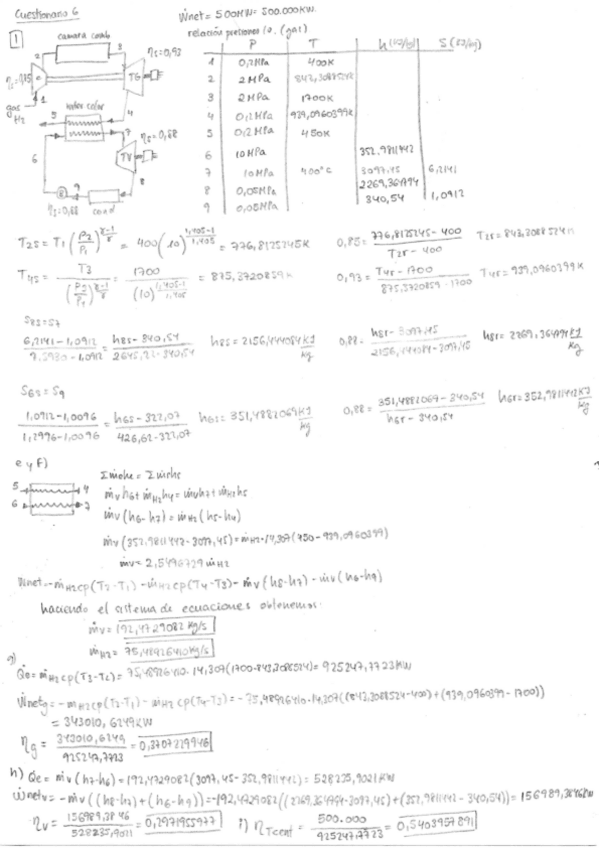 Cuestionario 6
Ẇnet = 500MW = 500.000KW.
1
camara comb
relación presiones 10. (gas)
P T h (KJ/kg) S (KJ/kg)
2 3 ηs=0,93
ηs=0,85 C TG
gas H2 1
1 0,2MPa 400K
2 2 MPa 843,3088524K
3 2 MPa 1700K
4 0,2MPa 939,0960399K
5 0,2MPa 450K
6 10 MPa 352,9811442
7 10MPa 400°C 3097,45 6,2141
8 0,05MPa 2269,364794
9 0,05MPa 340,54 1,0912
inter calor
5 4
7 ηs=0,88
6 TV
B 9 8
ηs=0,88 cond
T2s = T1 (P2/P1)^(γ-1/γ) = 400(10)^(1,405-1/1,405) = 776,8125245K
0,85 = 776,8125245 - 400 / T2r - 400 T2r = 843,3088524K
T4s = T3 / (P2/P1)^(γ-1/γ) = 1700 / (10)^(1,405-1/1,405) = 875,3720859K
0,93 = T4r - 1700 / 875,3720859 - 1700 T4r = 939,0960399K
S8s = S7
6,2141 - 1,0912 / 7,5930 - 1,0912 = h8s - 340,54 / 2645,22 - 340,54 h8s = 2156,444084 KJ/kg
0,88 = h8r - 3097,45 / 2156,444084 - 3097,45 h8r = 2269,364794 KJ/kg
S6s = S9
1,0912 - 1,0096 / 1,2996 - 1,0096 = h6s - 322,07 / 426,62 - 322,07 h6s = 351,4882069 KJ/kg
0,88 = 351,4882069 - 340,54 / h6r - 340,54 h6r = 352,9811442 KJ/kg
e y F)
5 4
6 7
Σṁehe = Σṁshs
ṁv h6 + ṁH2 h4 = ṁv h7 + ṁH2 h5
ṁv (h6 - h7) = ṁH2 (h5 - h4)
ṁv (352,9811442 - 3097,45) = ṁH2 · 14,307 (450 - 939,0960399)
ṁv = 2,5496729 ṁH2
Ẇnet = -ṁH2 cp (T2 - T1) - ṁH2 cp (T4 - T3) - ṁv (h8 - h7) - ṁv (h6 - h9)
haciendo el sistema de ecuaciones obtenemos:
ṁv = 192,4729082 kg/s
ṁH2 = 75,48926410 kg/s
g)
Q̇e = ṁH2 cp (T3 - T2) = 75,48926410 · 14,307 (1700 - 843,3088524) = 925247,7723 KW
Ẇnetg = -ṁH2 cp (T2 - T1) - ṁH2 cp (T4 - T3) = -75,48926410 · 14,307 ((843,3088524 - 400) + (939,0960399 - 1700))
= 343010,6249KW
ηg = 343010,6249 / 925247,7723 = 0,3707229946
h) Q̇e = ṁv (h7 - h6) = 192,4729082 (3097,45 - 352,9811442) = 528235,9021 KW
Ẇnetv = -ṁv ((h8 - h7) + (h6 - h9)) = -192,4729082 ((2269,364794 - 3097,45) + (352,9811442 - 340,54)) = 156989,3846KW
ηv = 156989,3846 / 528235,9021 = 0,2971955977
i) ηTcent = 500.000 / 925247,7723 = 0,5403957891